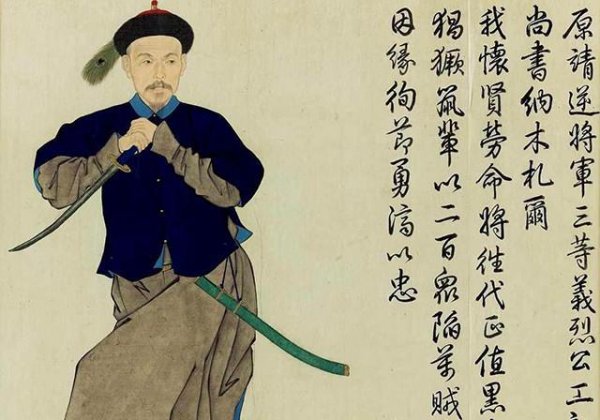 原靖逆將軍三等義烈公工
尚書納木札爾
我懷賢勞命將往代正值黑
猖獗鼠輩以二百眾陷萬賊
因緣徇節勇濟以忠